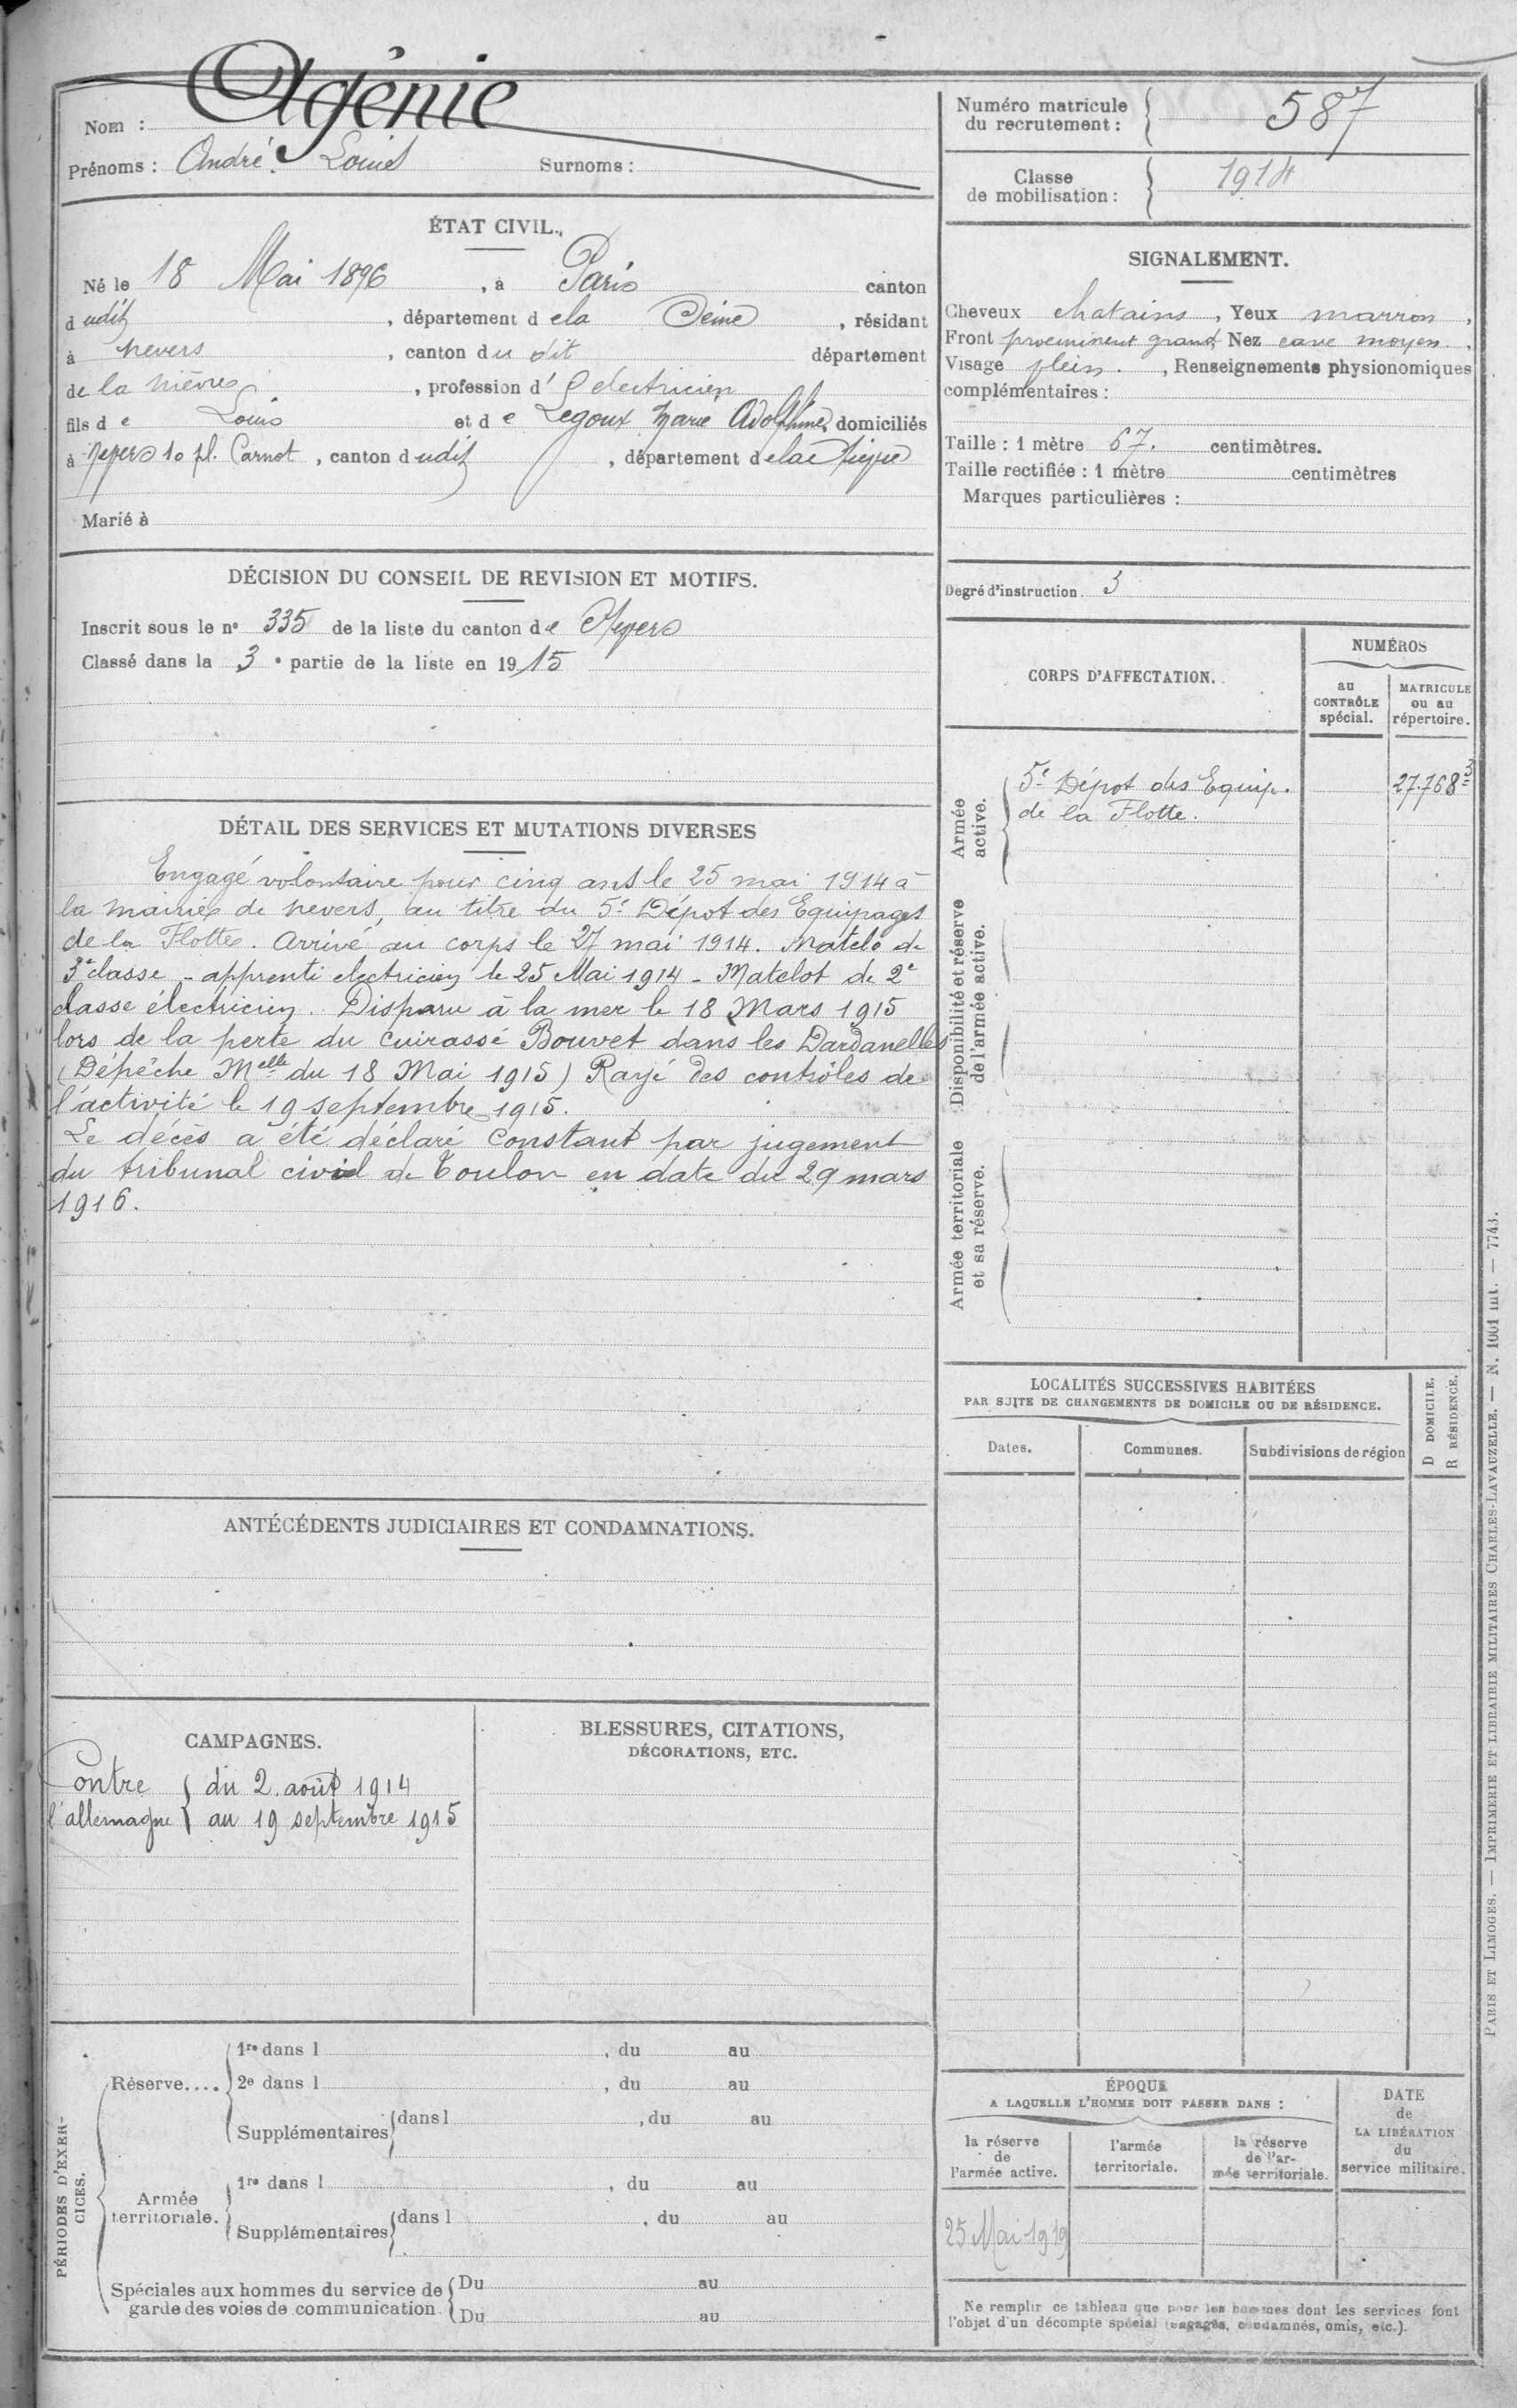 Nom : Agénie
Prénoms : André Louis Surnoms :
Numéro matricule
du recrutement : 587
Classe
de mobilisation : 1914
ÉTAT CIVIL.
Né le 18 Mai 1896, à Paris canton
dudit, département de la Seine, résidant
à Nevers, canton du dit département
de la Nièvre, profession d'électricien
fils de Louis et de Legoux Marie Adolphine, domiciliés
à Nevers 10 pl. Carnot, canton dudit, département de la Nièvre
Marié à
SIGNALEMENT.
Cheveux chatains, Yeux marron,
Front proeminent grand, Nez cave moyen,
Visage plein., Renseignements physionomiques
complémentaires :
Taille : 1 mètre 67. centimètres.
Taille rectifiée : 1 mètre centimètres
Marques particulières :
Degré d'instruction. 3
DÉCISION DU CONSEIL DE REVISION ET MOTIFS.
Inscrit sous le n° 335 de la liste du canton de Nevers
Classé dans la 3e partie de la liste en 1915
DÉTAIL DES SERVICES ET MUTATIONS DIVERSES
Engagé volontaire pour cinq ans le 25 mai 1914 à
la mairie de Nevers, au titre du 5e Dépot des Equipages
de la Flotte. Arrivé au corps le 27 mai 1914. Matelo de
3e classe - apprenti electricien le 25 Mai 1914 - Matelot de 2e
classe électricien. Disparu à la mer le 18 Mars 1915
lors de la perte du cuirassé Bouvet dans les Dardanelles
(Dépêche Melle du 18 Mai 1915) Rayé des contrôles de
l'activité le 19 septembre 1915.
Le décès a été déclaré constant par jugement
du tribunal civil de Toulon en date du 29 mars
1916.
CORPS D'AFFECTATION.
NUMÉROS
au
CONTRÔLE
spécial.
MATRICULE
ou au
répertoire.
Armée
active.
5e Dépot des Equip.
de la Flotte.
27.768=3
Disponibilité et réserve
de l'armée active.
Armée territoriale
et sa réserve.
LOCALITÉS SUCCESSIVES HABITÉES
PAR SUITE DE CHANGEMENTS DE DOMICILE OU DE RÉSIDENCE.
Dates.
Communes.
Subdivisions de région
D DOMICILE.
R RÉSIDENCE.
ANTÉCÉDENTS JUDICIAIRES ET CONDAMNATIONS.
CAMPAGNES.
Contre du 2. août 1914
l'allemagne au 19 septembre 1915
BLESSURES, CITATIONS,
DÉCORATIONS, ETC.
PÉRIODES D'EXER-
CICES.
Réserve....
1re dans l , du au
2e dans l , du au
Supplémentaires dans l , du au
Armée
territoriale.
1re dans l , du au
Supplémentaires dans l , du au
Spéciales aux hommes du service de
garde des voies de communication
Du au
Du au
ÉPOQUE
A LAQUELLE L'HOMME DOIT PASSER DANS :
la réserve
de
l'armée active.
l'armée
territoriale.
la réserve
de l'ar-
mée territoriale.
DATE
de
LA LIBÉRATION
du
service militaire.
25 Mai 1919
Ne remplir ce tableau que pour les hommes dont les services font
l'objet d'un décompte spécial (engagés, condamnés, omis, etc.).
PARIS ET LIMOGES. — IMPRIMERIE ET LIBRAIRIE MILITAIRES CHARLES-LAVAUZELLE. — N. 1001 int. — 7743.